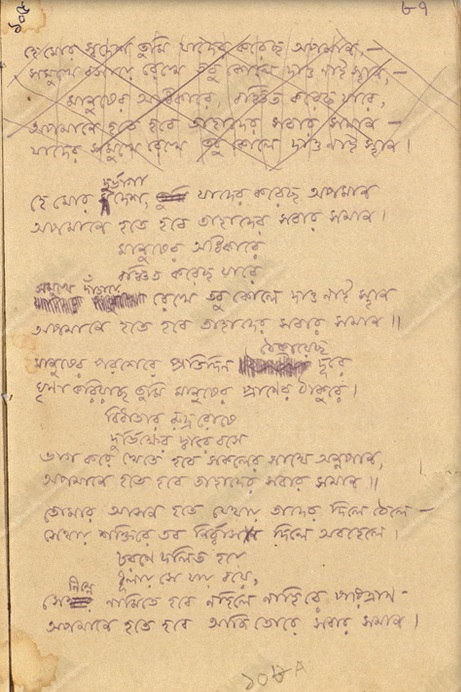 ১০৫
৮৭
হে মোর স্বদেশ তুমি যাদের করেছ অপমান, —
সম্মুখে রেখে তবু কোলে দাও নাই স্থান, —
মানুষের অধিকারে, বঞ্চিত করেছ যারে,
অপমানে হতে হবে তাহাদের সবার সমান —
যাদের সম্মুখে রেখে তবু কোলে দাও নাই স্থান।
দুর্ভাগা
হে মোর দেশ, যাদের করেছ অপমান
অপমানে হতে হবে তাহাদের সবার সমান।
মানুষের অধিকারে
বঞ্চিত করেছ যারে
সম্মুখে দাঁড়ায়ে
রেখে তবু কোলে দাও নাই স্থান
অপমানে হতে হবে তাহাদের সবার সমান॥
ঠেকায়েছ
মানুষের পরশেরে প্রতিদিন দূরে
ঘৃণা করিয়াছ তুমি মানুষের প্রাণের ঠাকুরে।
বিধাতার রুদ্ররোষে
দুর্ভিক্ষের দ্বারে বসে
ভাগ করে খেতে হবে সকলের সাথে অন্নপান,
অপমানে হতে হবে তাহাদের সবার সমান॥
তোমার আসন হতে যেথায় তাদের দিলে ঠেলে —
সেথায় শক্তিরে তব নির্ব্বাসন দিলে অবহেলে।
চরণে দলিত হয়ে
ধূলায় সে যায় বয়ে,
নিম্নে
সেই নামিতে হবে নহিলে নাহিরে পরিত্রাণ -
অপমানে হতে হবে আজি তোরে সবার সমান।
১০৮A